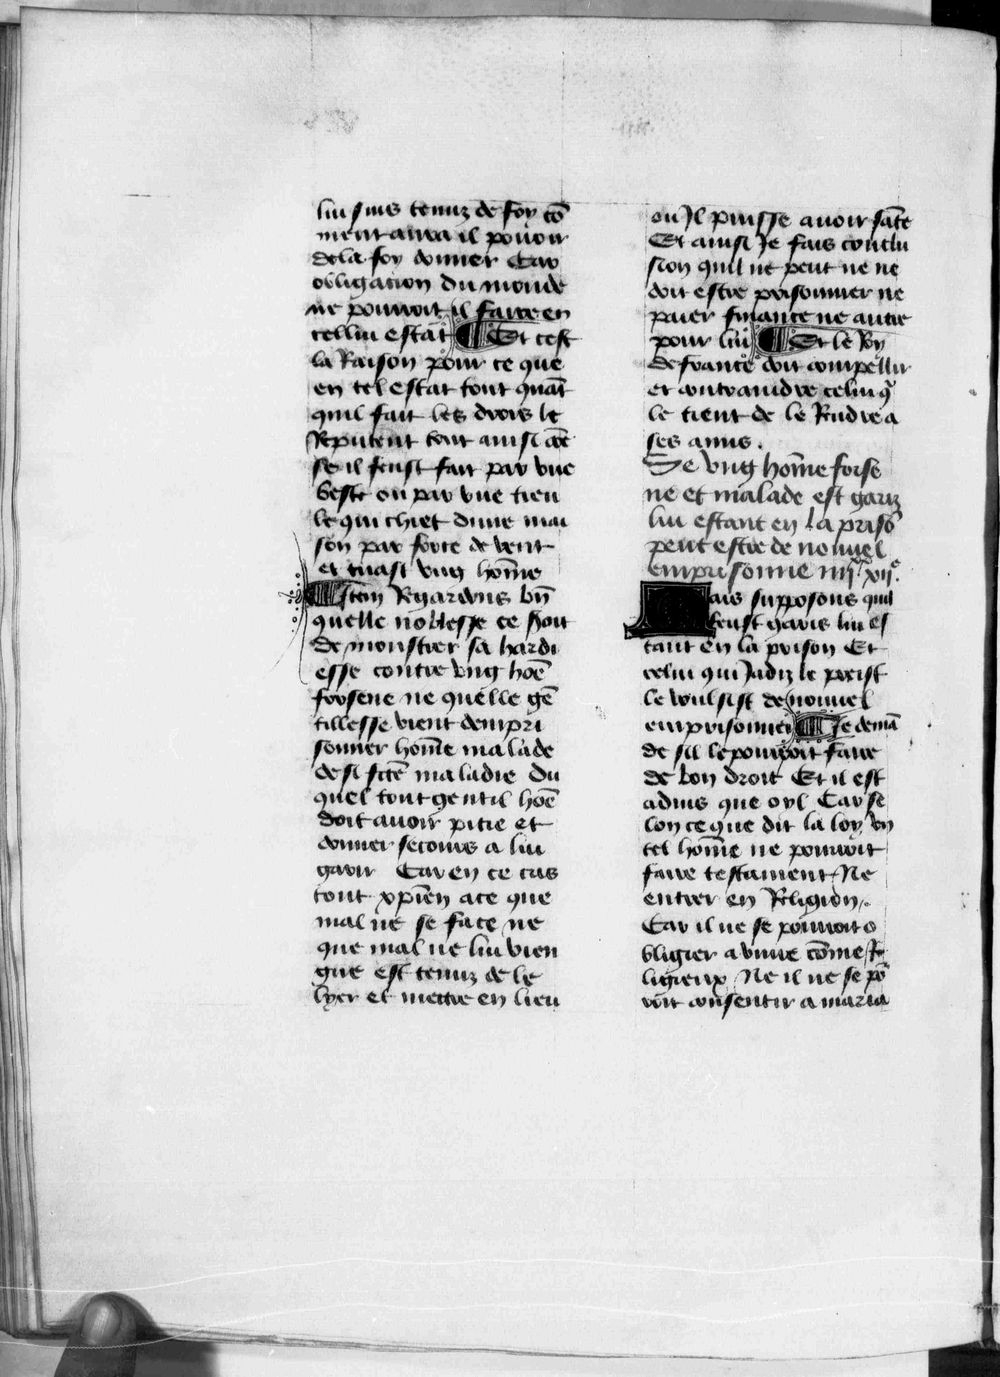 lui suis tenuz de foy cõ
ment aura il pouoir
de la foy donner Car
obligacion du monde
ne pourroit il faire en
cellui estat ¶ Et cest
la Raison pour ce que
en tel estat tout quãt
quil fait les drois le
Reputent tout ainsi cõe
se il feust fait par vne
beste ou par vne tieu
le qui chiet dune mai
son par force de vent
et tuast vng hõme
¶ Item Regardons bñ
quelle noblesse ce soit
de monstrer sa hardi
esse contre vng hõe
forsene ne quelle gẽ
tillesse vient dempri
sonner hõme malade
de si fcẽ maladie du
quel tout gentil hõe
doit auoir pitie et
donner secours a lui
garir Car en ce cas
tout xpiẽn ace que
mal ne se face ne
que mal ne lui vien
gne est tenuz de le
lyer et mettre en lieu
ou Jl puisse auoir sãte
Et ainsi Je fais conclu
sion quil ne peut ne ne
doit estre prisonnier ne
paier finance ne autre
pour lui ¶ Et le Roy
de france doit compellir
et contraindre celui q̃
le tient de le Rendre a
ses amis .
De vng hõme forse
ne et malade est gariz
lui estant en la prisõ
peut estre de nouuel
emprisonne iiijˣˣ xijᵉ.
Mais supposons quil
feust garis lui es
tant en la prison Et
celui qui Jadiz le prist
le voulsist de nouuel
emprisonner ¶ Je demã
de sil le pourroit faire
de bon droit Et il est
aduis que oyl Car se
lon ce que dit la loy vn
tel hõme ne pourroit
faire testament Ne
entrer en Religion.
Car il ne se pourroit o
bligier a viure cõme Re
ligieux Ne il ne se põ
roit consentir a maria